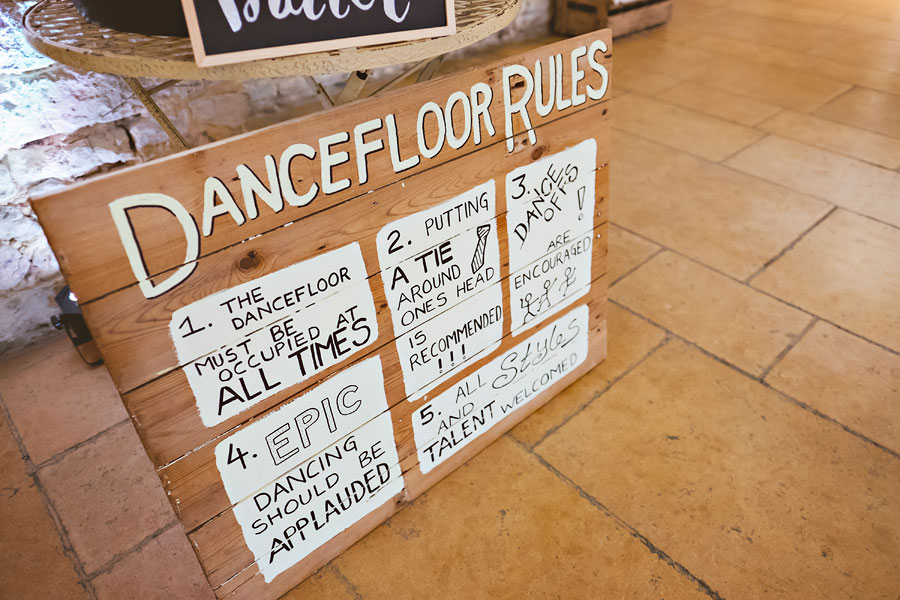 DANCEFLOOR RULES
1. THE
DANCEFLOOR
MUST BE
OCCUPIED AT
ALL TIMES
2. PUTTING
A TIE
AROUND
ONES HEAD
IS
RECOMMENDED
!!!
3. DANCE
OFFS!
ARE
ENCOURAGED
4. EPIC
DANCING
SHOULD BE
APPLAUDED
5. ALL Styles
AND
TALENT WELCOMED